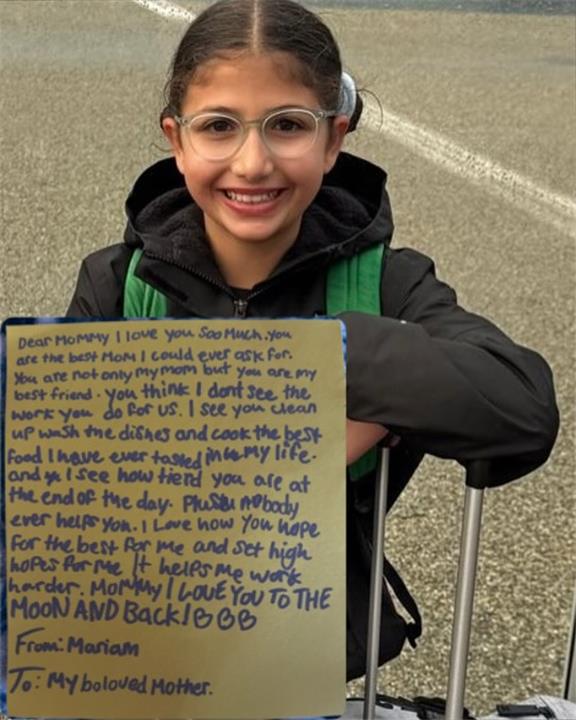 Dear Mommy I love you Soo Much. You
are the best Mom I could ever ask for.
You are not only my mom but you are my
best friend. You think I dont see the
work you do for us. I see you clean
up wash the dishes and cook the best
food I have ever tasted in my life.
and I see how tierd you are at
the end of the day. Plus nobody
ever helps you. I Love how you hope
for the best for me and set high
hopes for me It helps me work
harder. Mommy I LOVE YOU TO THE
MOON AND BACK!
From: Mariam
To: My boloved Mother.